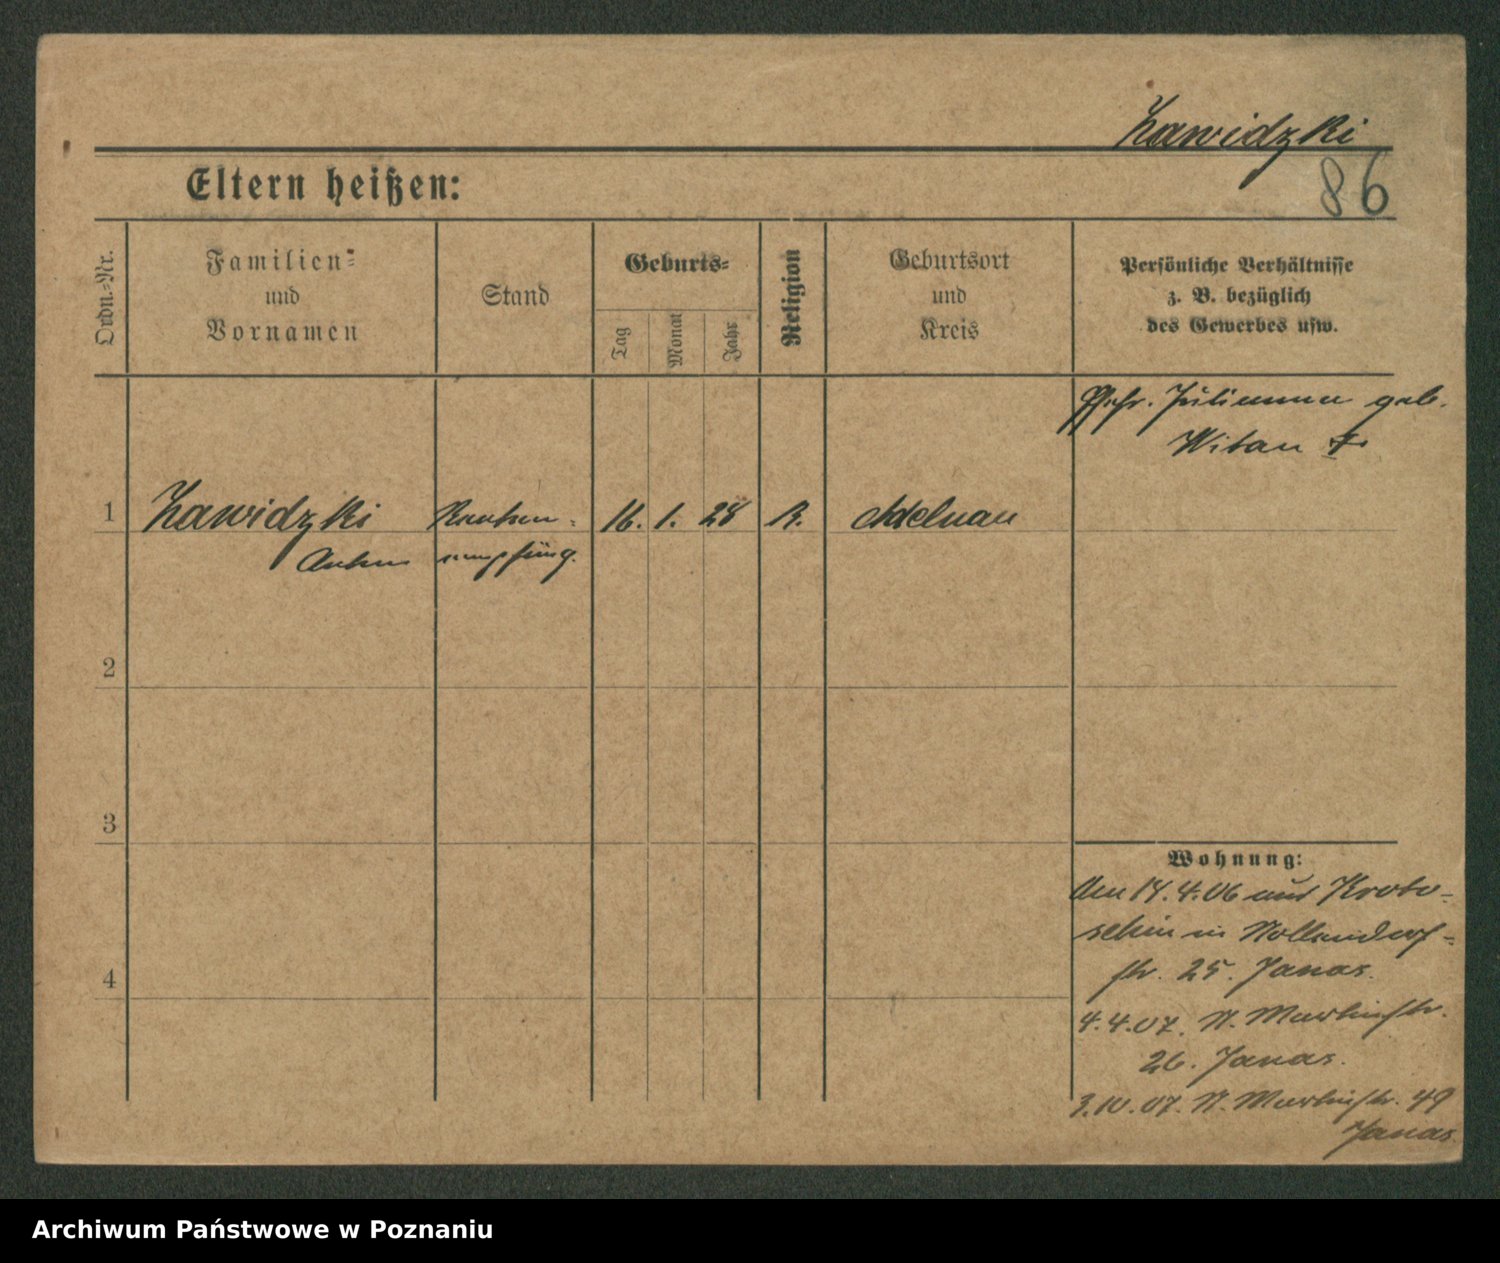 Zawidzki
86
Eltern heißen:
Ordn.-Nr.
Familien-
und
Vornamen
Stand
Geburts-
Tag
Monat
Jahr
Religion
Geburtsort
und
Kreis
Persönliche Verhältnisse
z. B. bezüglich
des Gewerbes usw.
geb.
Witan
1
Zawidzki
Renten-
16. 1. 28
R.
Adelnau
Anton
empfäng.
2
3
Wohnung:
Am 14.4.06 aus Kroto-
schin in Nollendorf-
str. 25. Janas.
4
4.4.07. N. Martinstr.
26. Janas.
3.10.07. N. Martinstr. 49
Janas
Archiwum Państwowe w Poznaniu